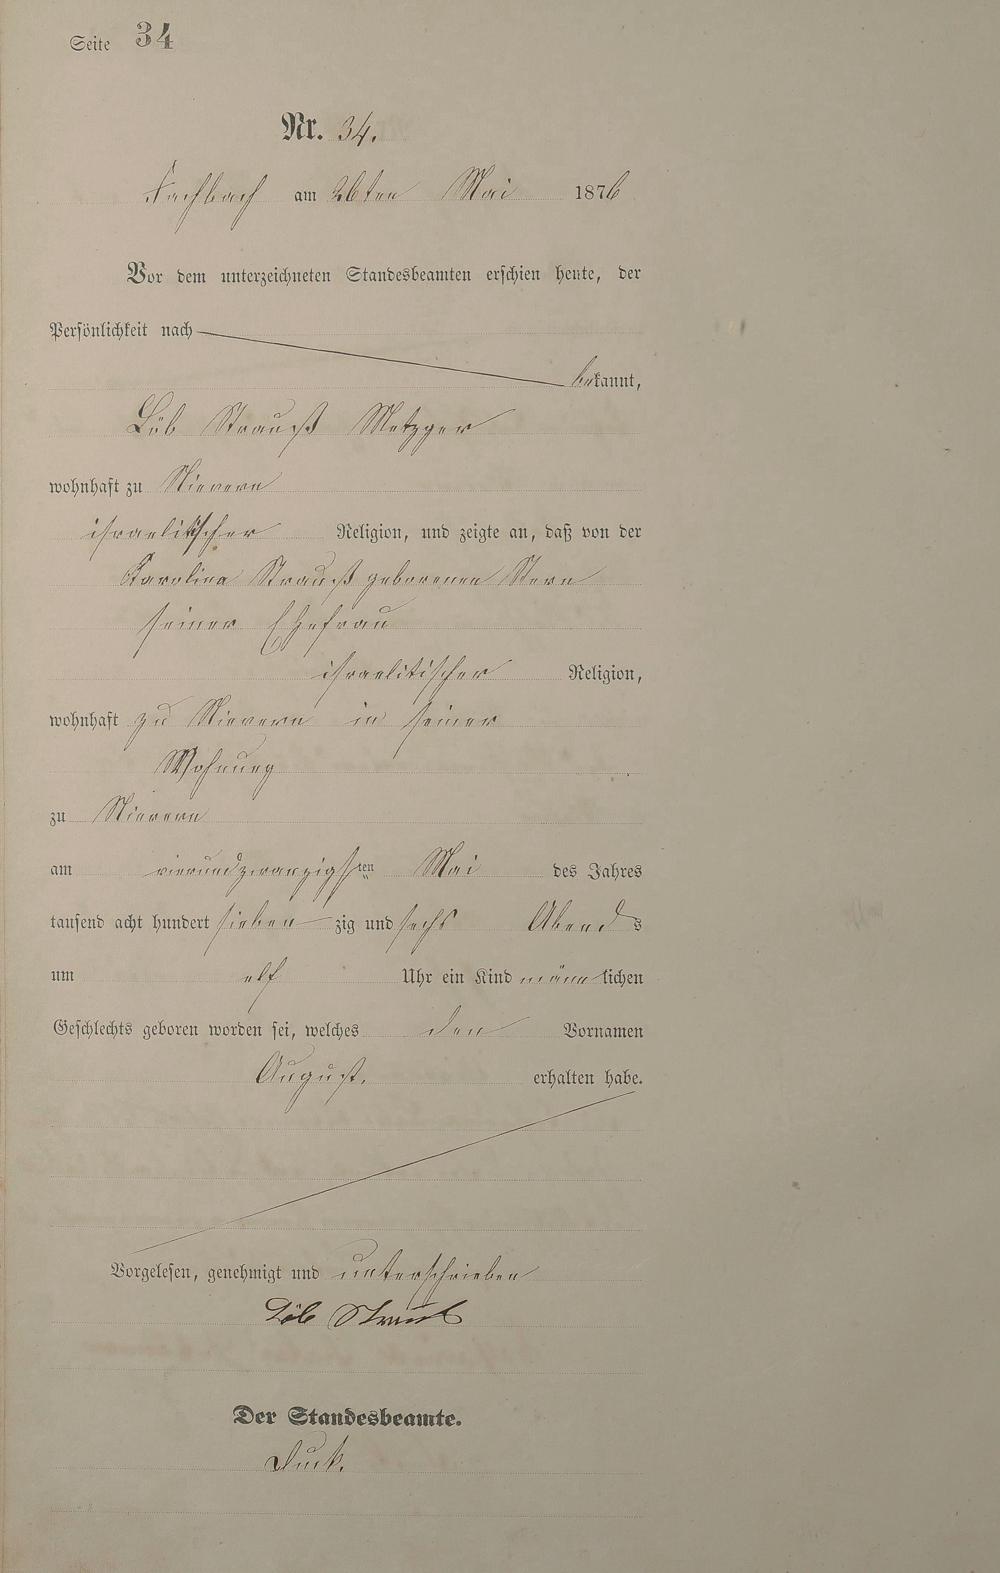 Seite 34
Nr. 34.
Fachbach am 26ten Mai 1876
Vor dem unterzeichneten Standesbeamten erschien heute, der
Persönlichkeit nach
bekannt,
Löb Strauß Metzger
wohnhaft zu Nievern
israelitischer Religion, und zeigte an, daß von der
Karolina Strauß geborenen Stern
seiner Ehefrau
israelitischer Religion,
wohnhaft zu Nievern in seiner
Wohnung
zu Nievern
am vierundzwanzigsten Mai des Jahres
tausend acht hundert siebenzig und sechs Abends
um elf Uhr ein Kind männlichen
Geschlechts geboren worden sei, welches den Vornamen
August. erhalten habe.
Vorgelesen, genehmigt und unterschrieben
Löb Straus
Der Standesbeamte.